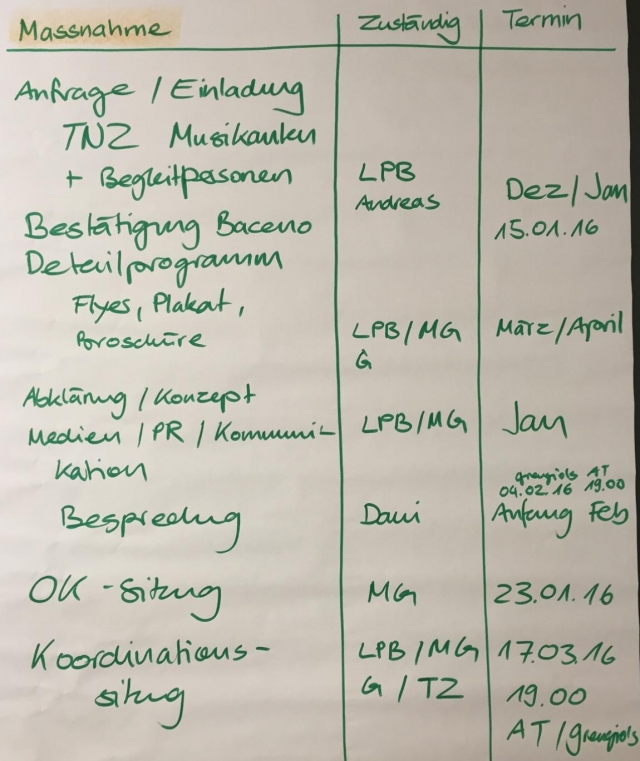 Massnahme Zuständig Termin
Anfrage / Einladung
TNZ Musikanten
+ Begleitpersonen LPB
Andreas Dez/Jan
Bestätigung Baceno 15.01.16
Deteilprogramm
Flyes, Plakat,
Broschüre LPB/MG März/April
G
Abklärung / Konzept
Medien / PR / Kommuni- LPB/MG Jan
kation grengiols AT
04.02 16 19.00
Besprechug Dani Anfang Feb
OK-Sitzug MG 23.01.16
Koordinations- LPB/MG 17.03.16
sitzug G/TZ 19.00
AT/grengiols